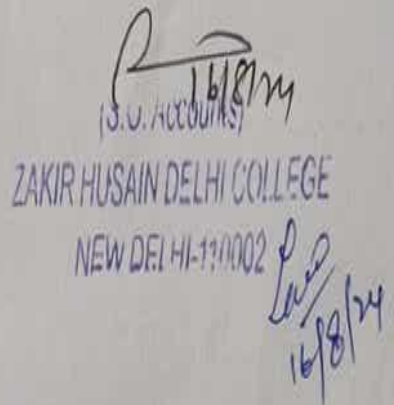 16/8/24
(S.O. Accounts)
ZAKIR HUSAIN DELHI COLLEGE
NEW DELHI-110002
16/8/24